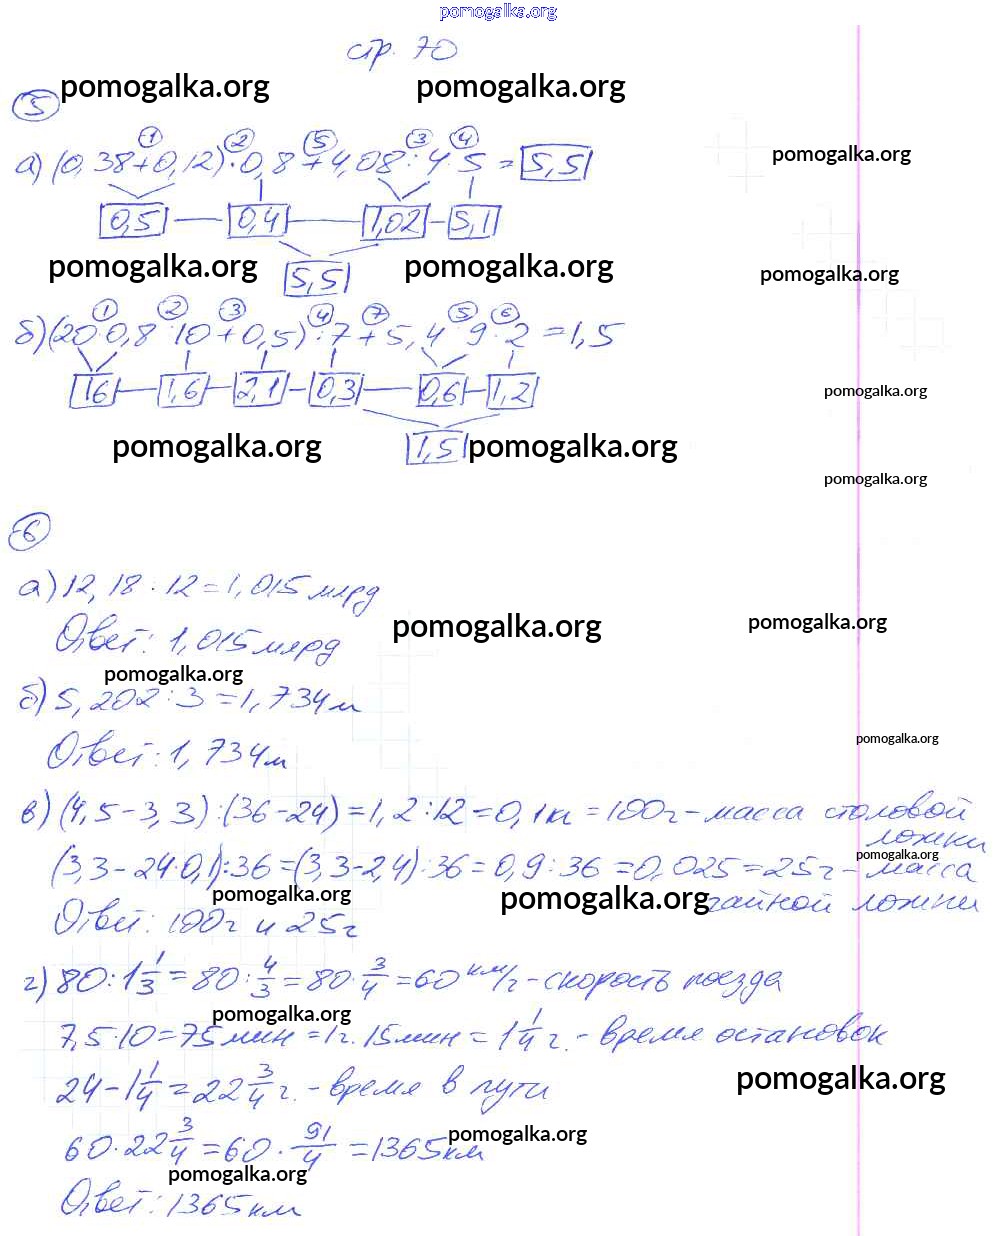 pomogalka.org
стр. 70
pomogalka.org pomogalka.org
5
1 2 5 3 4
а) (0,38+0,12)·0,8+4,08:4·5=5,5
pomogalka.org
0,5 0,4 1,02 5,1
pomogalka.org pomogalka.org pomogalka.org
5,5
1 2 3 4 7 5 6
б) (20·0,8:10+0,5):7+5,4:9·2=1,5
16 1,6 2,1 0,3 0,6 1,2
pomogalka.org
pomogalka.org 1,5 pomogalka.org
pomogalka.org
6
а) 12,18:12=1,015 млрд
Ответ: 1,015 млрд
pomogalka.org pomogalka.org
pomogalka.org
б) 5,202:3=1,734м
Ответ: 1,734м
pomogalka.org
в) (4,5-3,3):(36-24)=1,2:12=0,1кг=100г-масса столовой
ложки
pomogalka.org
(3,3-24·0,1):36=(3,3-2,4):36=0,9:36=0,025=25г-масса
pomogalka.org pomogalka.org чайной ложки
Ответ: 100г и 25г
г) 80:1 1/3=80:4/3=80·3/4=60 км/ч-скорость поезда
pomogalka.org
7,5·10=75мин=1ч. 15мин=1 1/4 ч.-время остановок
24-1 1/4=22 3/4 ч.-время в пути
pomogalka.org
60·22 3/4=60·91/4=1365км
pomogalka.org
pomogalka.org
Ответ: 1365км